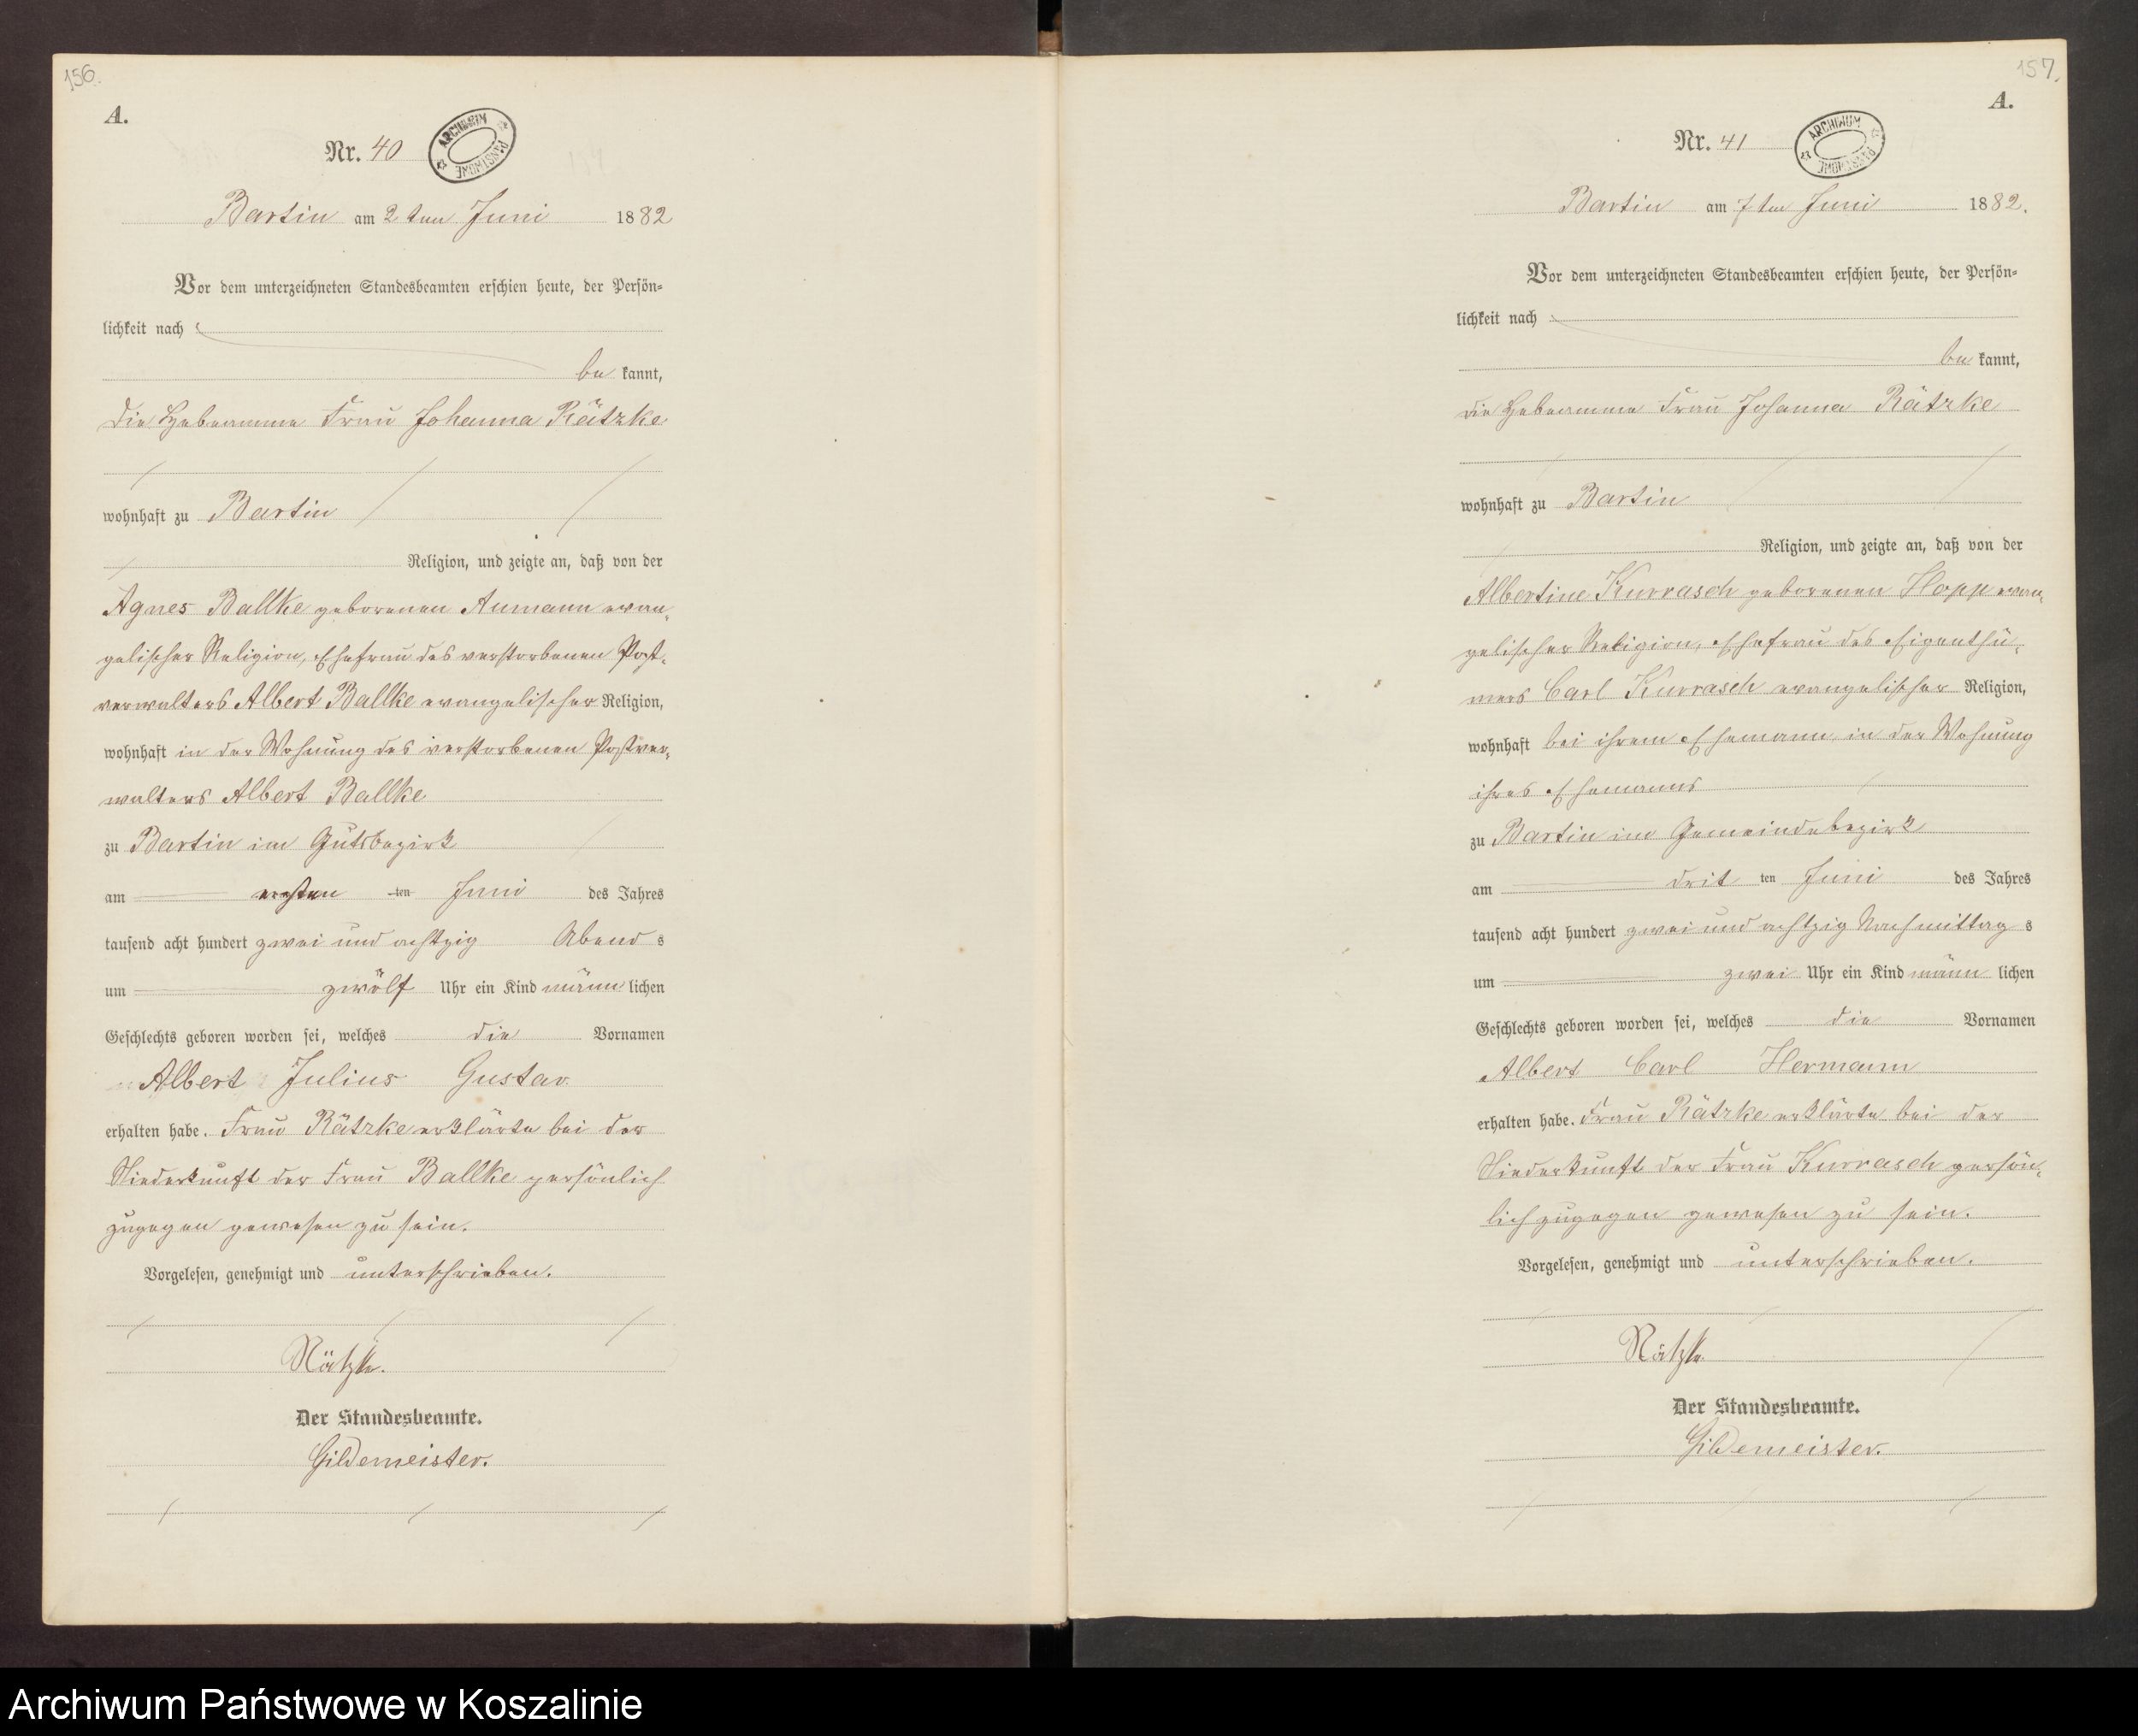 156.
A.
Nr. 40
ARCHIWUM PAŃSTWOWE
Bartin am 2ten Juni 1882
Vor dem unterzeichneten Standesbeamten erschien heute, der Persön-
lichkeit nach
be kannt,
die Hebeamme Frau Johanna Rätzke
wohnhaft zu Bartin
Religion, und zeigte an, daß von der
Agnes Ballke geborenen Aumann evan-
gelischer Religion, Ehefrau des verstorbenen Post-
verwalters Albert Ballke evangelischer Religion,
wohnhaft in der Wohnung des verstorbenen Postver-
walters Albert Ballke
zu Bartin im Gutsbezirk
am ersten ten Juni des Jahres
tausend acht hundert zwei und achtzig Abend s
um zwölf Uhr ein Kind männ lichen
Geschlechts geboren worden sei, welches die Vornamen
Albert Julius Gustav
erhalten habe. Frau Rätzke erklärte bei der
Niederkunft der Frau Ballke persönlich
zugegen gewesen zu sein.
Vorgelesen, genehmigt und unterschrieben.
Rätzke.
Der Standesbeamte.
Gildemeister.
157.
A.
Nr. 41
ARCHIWUM PAŃSTWOWE
Bartin am 7ten Juni 1882.
Vor dem unterzeichneten Standesbeamten erschien heute, der Persön-
lichkeit nach
be kannt,
die Hebeamme Frau Johanna Rätzke
wohnhaft zu Bartin
Religion, und zeigte an, daß von der
Albertine Kurrasch geborenen Hopp evan-
gelischer Religion, Ehefrau des Eigenthü-
mers Carl Kurrasch evangelischer Religion,
wohnhaft bei ihrem Ehemann, in der Wohnung
ihres Ehemanns
zu Bartin im Gemeindebezirk
am drit ten Juni des Jahres
tausend acht hundert zwei und achtzig Nachmittag s
um zwei Uhr ein Kind männ lichen
Geschlechts geboren worden sei, welches die Vornamen
Albert Carl Hermann
erhalten habe. Frau Rätzke erklärte bei der
Niederkunft der Frau Kurrasch persön-
lich zugegen gewesen zu sein.
Vorgelesen, genehmigt und unterschrieben.
Rätzke.
Der Standesbeamte.
Gildemeister.
Archiwum Państwowe w Koszalinie